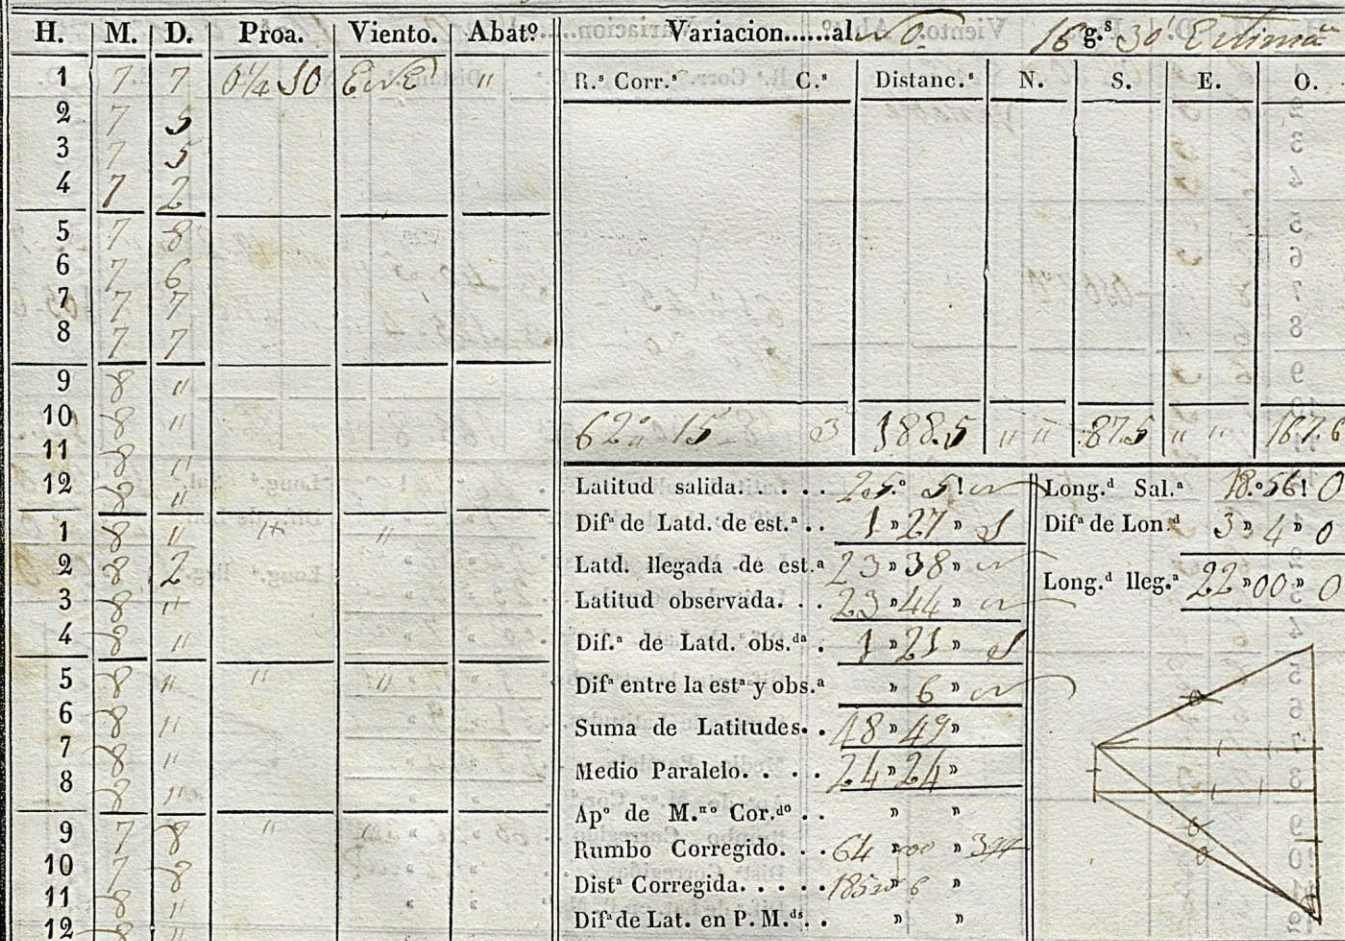 H. M. D. Proa. Viento. Abatº. Variacion......al N O. 16 g.s 30' Estima
1 7 7 O¼SO ENE "
2 7 5
3 7 5
4 7 2
5 7 8
6 7 6
7 7 7
8 7 7
9 8 "
10 8 "
11 8 "
12 8 "
1 8 " "
2 8 2
3 8 "
4 8 "
5 8 " " "
6 8 "
7 8 "
8 8 "
9 7 8 " "
10 7 8
11 8 "
12 8 "
R.s Corr.s C.s Distanc.s N. S. E. O.
62 " 15 188.5 " " 87.5 " " 167.6
Latitud salida. . . . . 25.º 5! N
Difª de Latd. de est.ª . . 1 » 27 » S
Latd. llegada de est.ª 23 » 38 » N
Latitud observada. . . 23 » 44 » N
Dif.ª de Latd. obs.da . 1 » 21 » S
Difª entre la estª y obs.ª » 6 » N
Suma de Latitudes. . 48 » 49 »
Medio Paralelo. . . . 24 » 24 »
Apº de M.no Cor.do . . » »
Rumbo Corregido. . . 64 » 00 »
Distª Corregida. . . . . 185 » 6 »
Difª de Lat. en P. M.ds. . » »
Long.d Sal.ª 18.º 56! O
Difª de Lon.d 3 » 4 » O
Long.d lleg.ª 22 » 00 » O